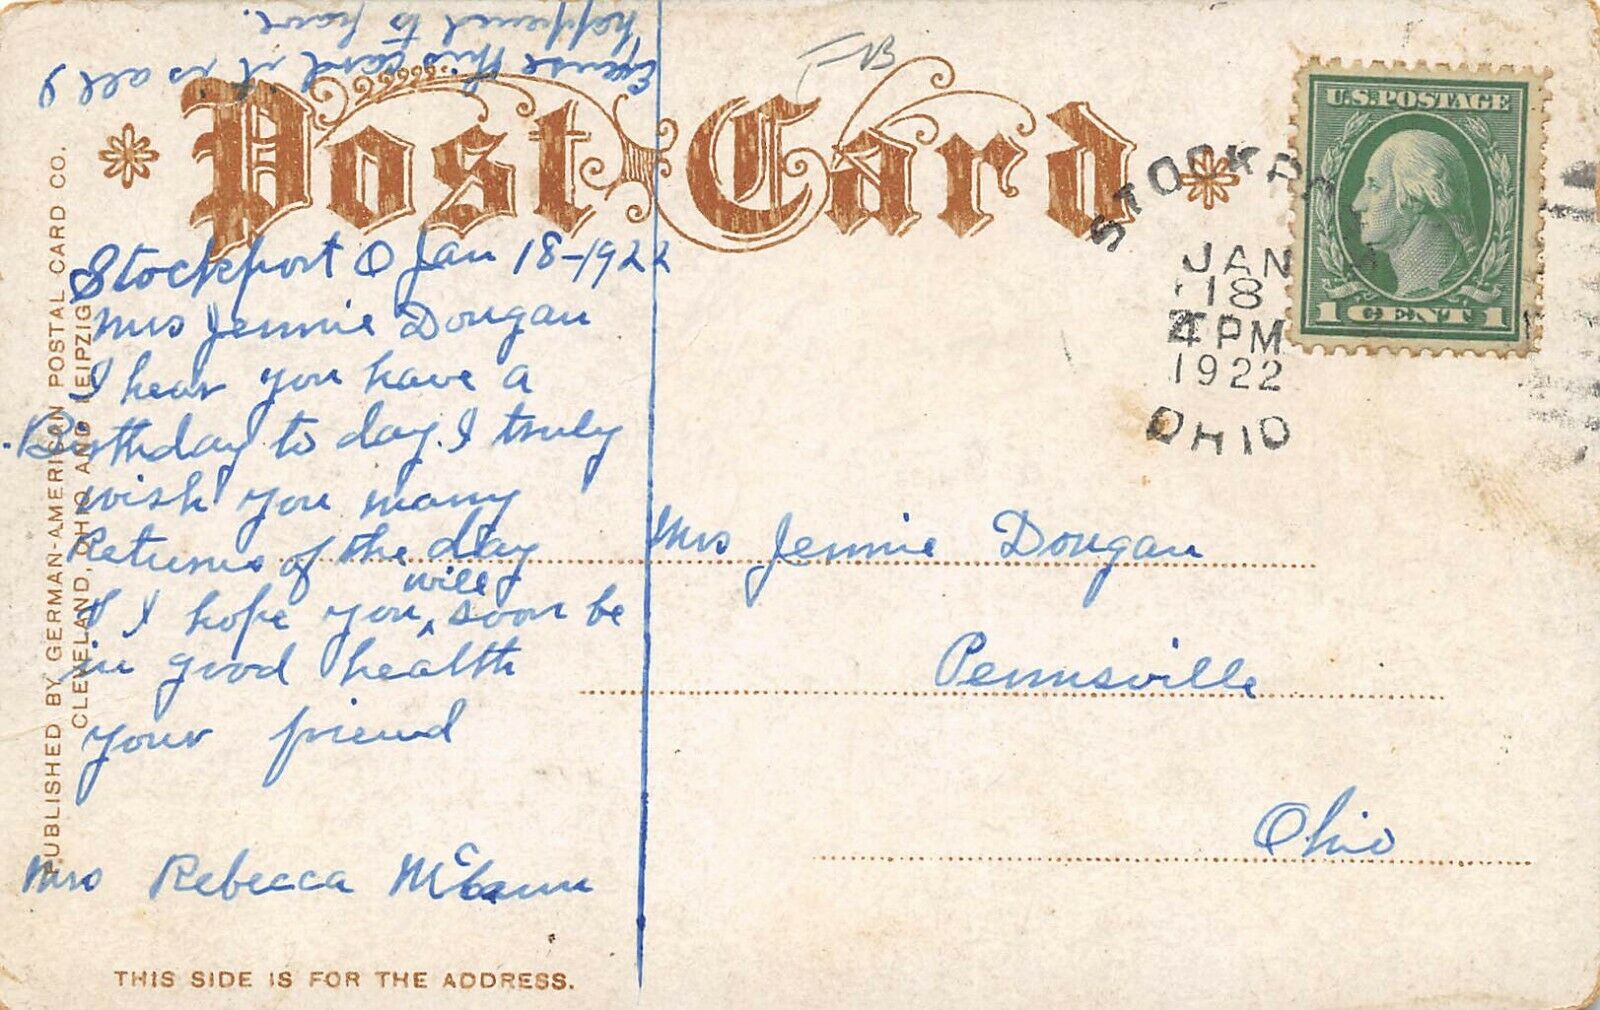 Excuse this card it is all I
happened to have.
Post Card
U.S. POSTAGE
1 CENT 1
STOCKPORT
JAN
18
4 PM
1922
OHIO
Stockport O Jan 18-1922
Mrs Jennie Dougan
I hear you have a
Birthday to day. I truly
wish you many
Returns of the day
& I hope you will soon be
in good health
your friend
Mrs Rebecca McCann
Mrs Jennie Dougan
Pennsville
Ohio
PUBLISHED BY GERMAN-AMERICAN POSTAL CARD CO.
CLEVELAND, OHIO AND LEIPZIG
THIS SIDE IS FOR THE ADDRESS.